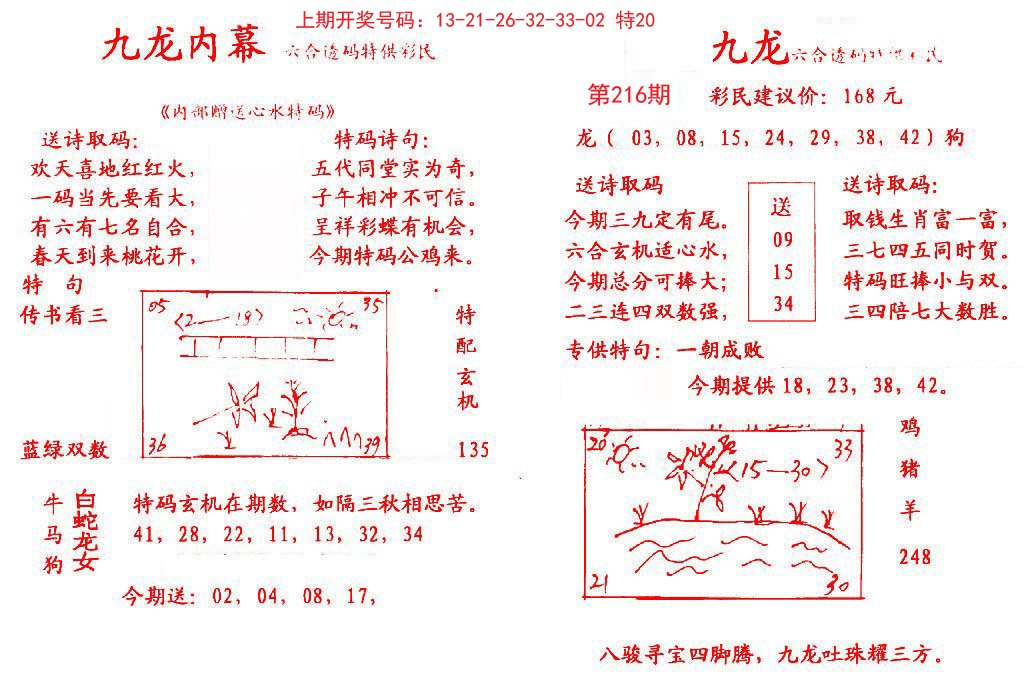 上期开奖号码：13-21-26-32-33-02 特20
九龙内幕 六合透码特供彩民
《内部赠送心水特码》
送诗取码：
欢天喜地红红火，
一码当先要看大，
有六有七名自合，
春天到来桃花开，
特码诗句：
五代同堂实为奇，
子午相冲不可信。
呈祥彩蝶有机会，
今期特码公鸡来。
特 句
传书看三
蓝绿双数
05
35
〈2—18〉
36
39
特
配
玄
机
135
牛
马
狗
白蛇龙女
特码玄机在期数，如隔三秋相思苦。
41，28，22，11，13，32，34
今期送：02，04，08，17，
九龙 六合透码特供彩民
第216期 彩民建议价：168元
龙（ 03，08，15，24，29，38，42）狗
送诗取码
今期三九定有尾。
六合玄机适心水，
今期总分可捧大；
二三连四双数强，
送
09
15
34
送诗取码：
取钱生肖富一富，
三七四五同时贺。
特码旺捧小与双。
三四陪七大数胜。
专供特句：一朝成败
今期提供18，23，38，42。
20
33
〈15—30〉
21
30
鸡
猪
羊
248
八骏寻宝四脚腾，九龙吐珠耀三方。